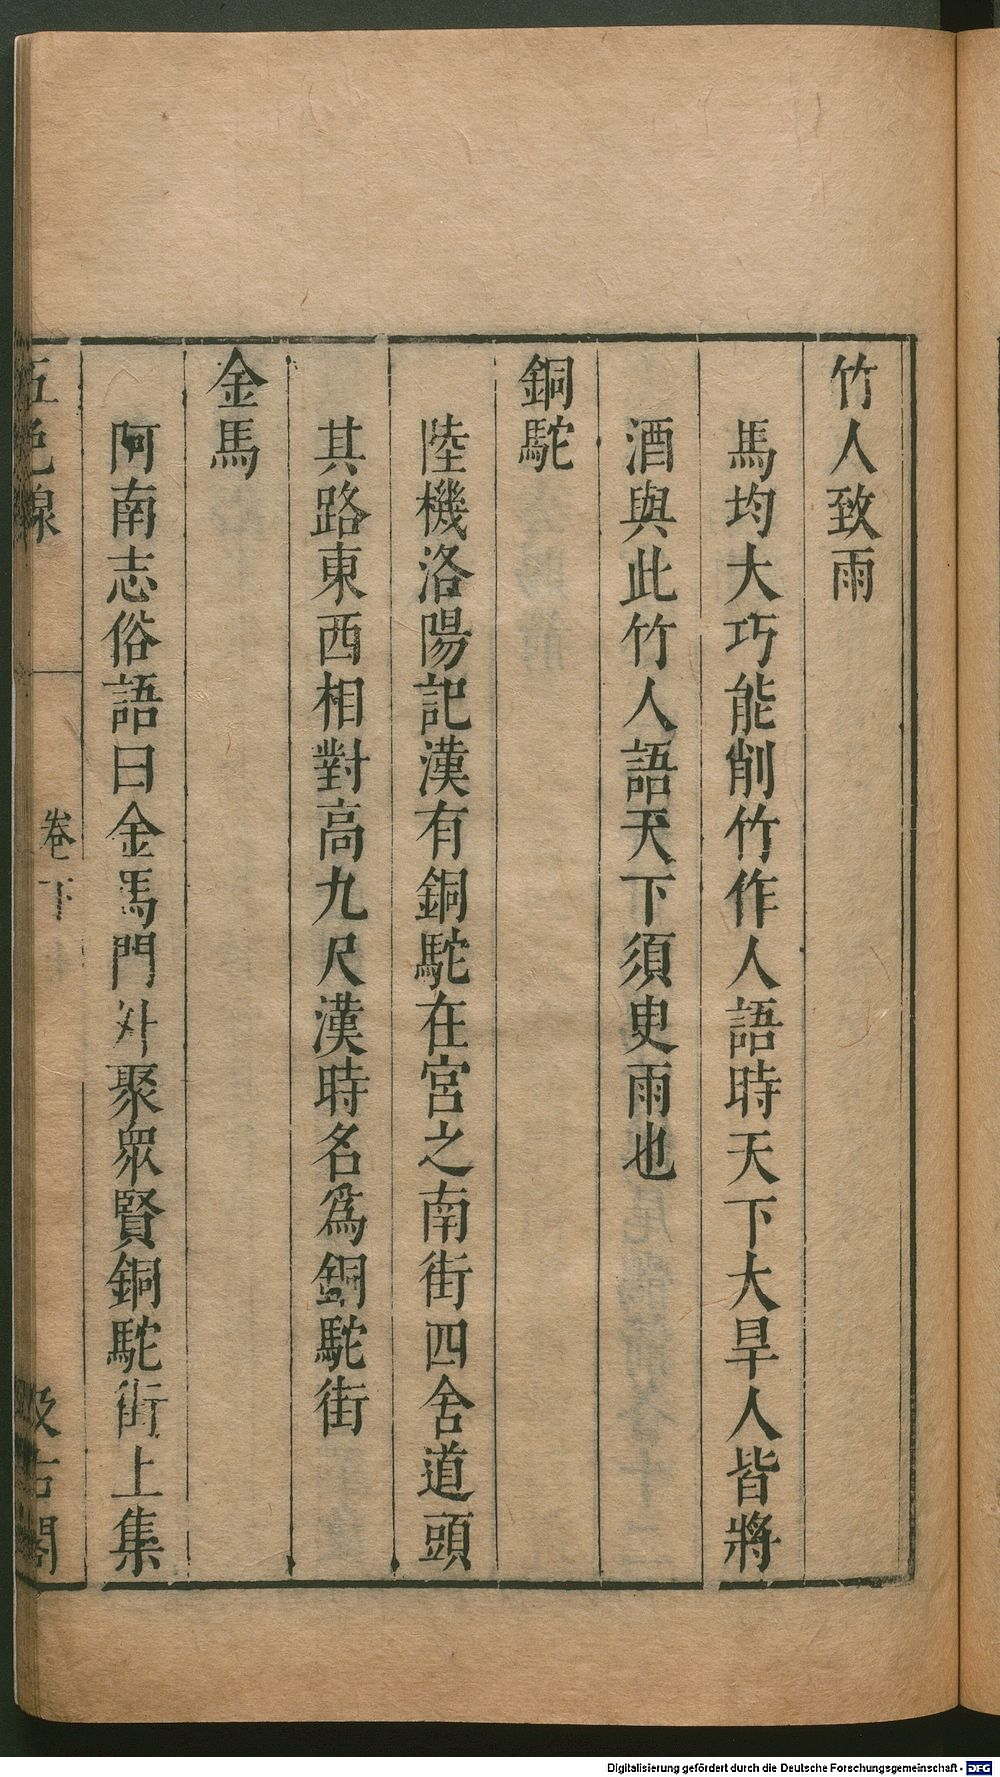 竹人致雨
馬均大巧能削竹作人語時天下大旱人皆將
酒與此竹人語天下須臾雨也
銅駝
陸機洛陽記漢有銅駝在宮之南街四會道頭
其路東西相對高九尺漢時名爲銅駝街
金馬
阿南志俗語曰金馬門外聚眾賢銅駝街上集
五色線
卷下
汲古閣
Digitalisierung gefördert durch die Deutsche Forschungsgemeinschaft - DFG